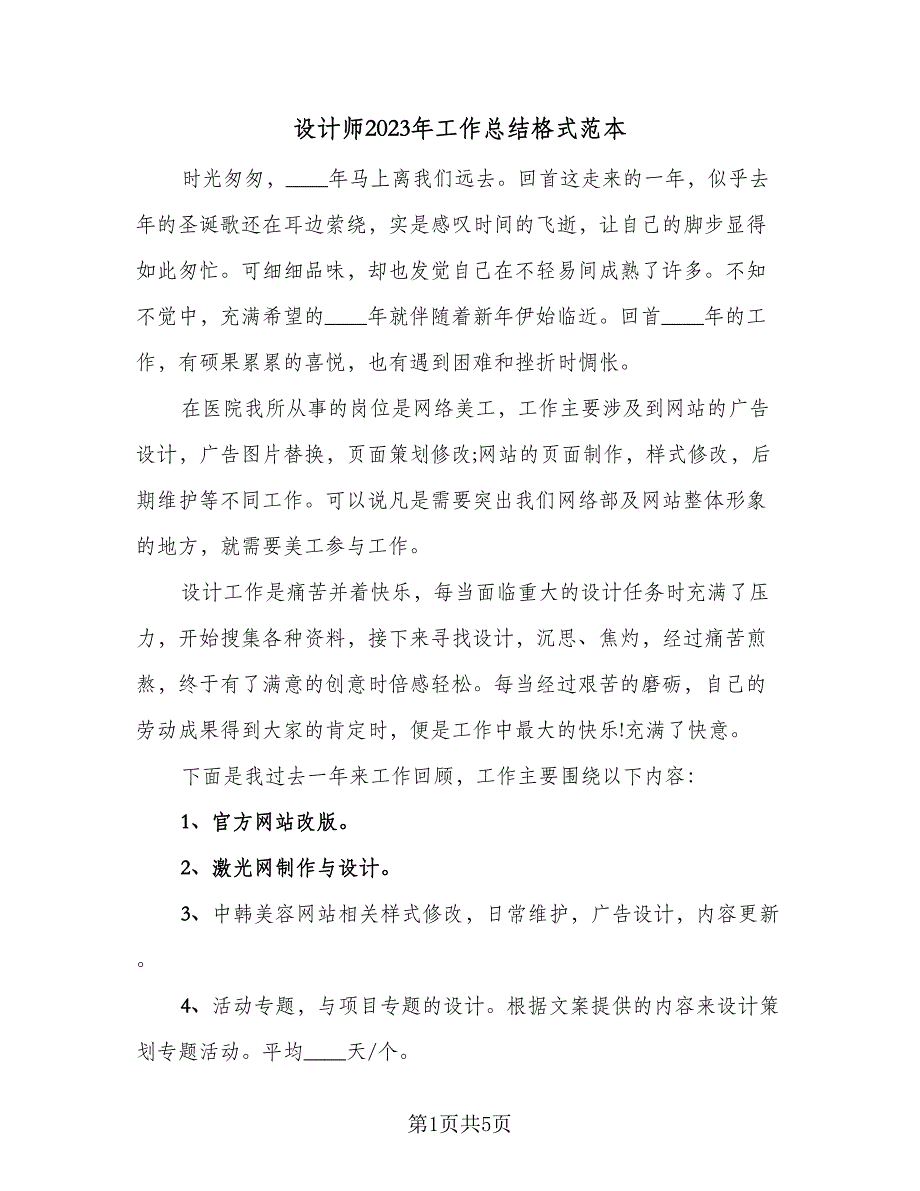 设计师2023年工作总结格式范本
时光匆匆，____年马上离我们远去。回首这走来的一年，似乎去
年的圣诞歌还在耳边萦绕，实是感叹时间的飞逝，让自己的脚步显得
如此匆忙。可细细品味，却也发觉自己在不轻易间成熟了许多。不知
不觉中，充满希望的____年就伴随着新年伊始临近。回首____年的工
作，有硕果累累的喜悦，也有遇到困难和挫折时惆怅。
在医院我所从事的岗位是网络美工，工作主要涉及到网站的广告
设计，广告图片替换，页面策划修改;网站的页面制作，样式修改，后
期维护等不同工作。可以说凡是需要突出我们网络部及网站整体形象
的地方，就需要美工参与工作。
设计工作是痛苦并着快乐，每当面临重大的设计任务时充满了压
力，开始搜集各种资料，接下来寻找设计，沉思、焦灼，经过痛苦煎
熬，终于有了满意的创意时倍感轻松。每当经过艰苦的磨砺，自己的
劳动成果得到大家的肯定时，便是工作中最大的快乐!充满了快意。
下面是我过去一年来工作回顾，工作主要围绕以下内容：
1、官方网站改版。
2、激光网制作与设计。
3、中韩美容网站相关样式修改，日常维护，广告设计，内容更新
。
4、活动专题，与项目专题的设计。根据文案提供的内容来设计策
划专题活动。平均____天/个。
第1页共5页